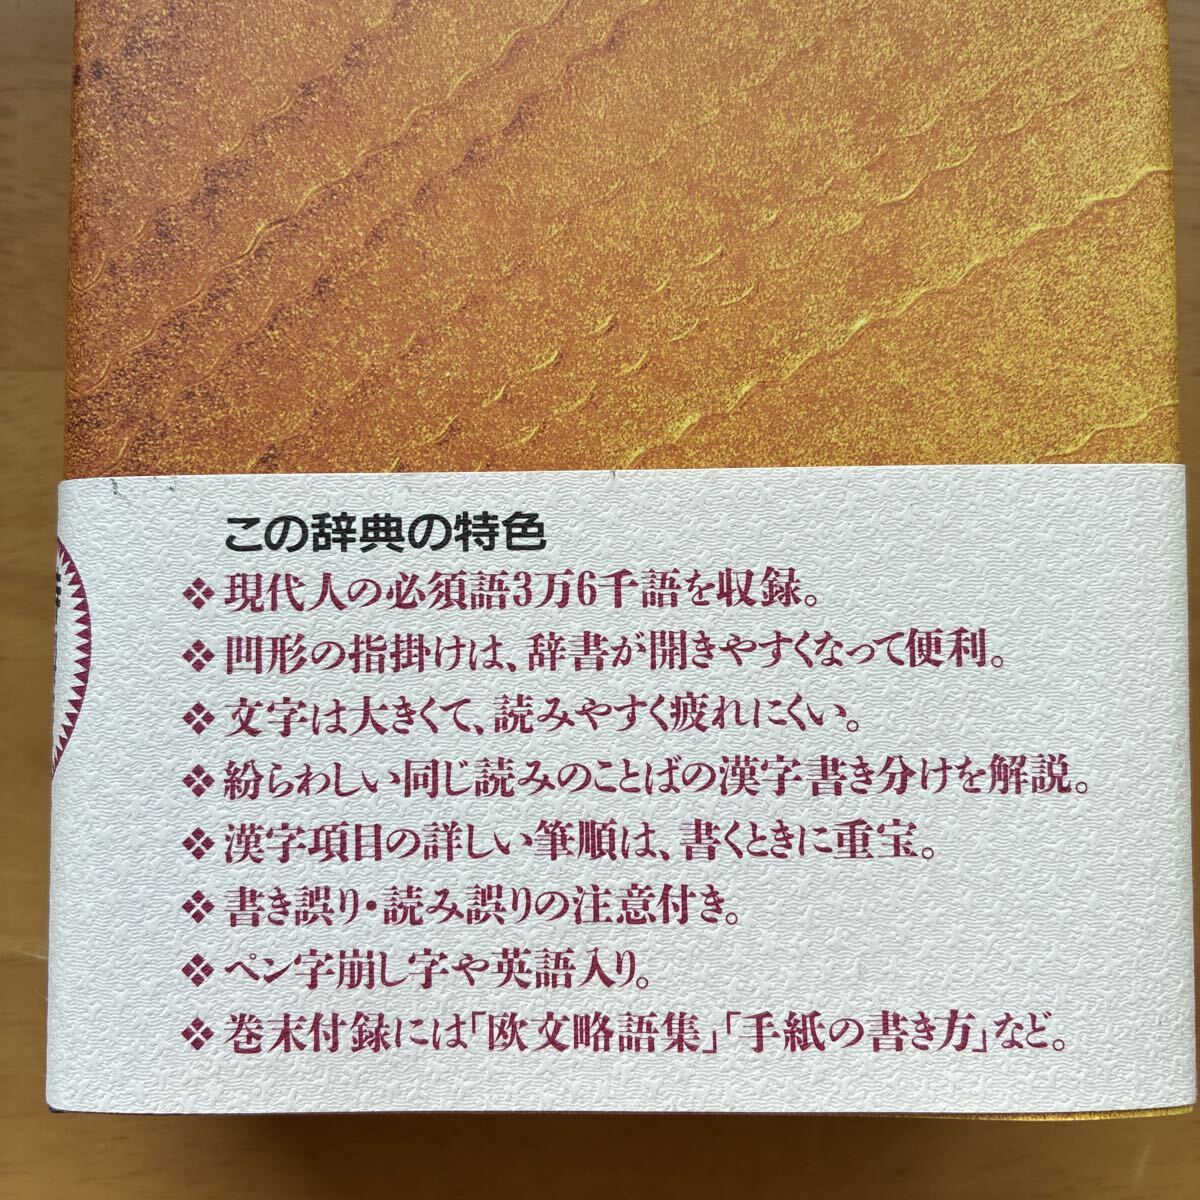 この辞典の特色
❖現代人の必須語3万6千語を収録。
❖凹形の指掛けは、辞書が開きやすくなって便利。
❖文字は大きくて、読みやすく疲れにくい。
❖紛らわしい同じ読みのことばの漢字書き分けを解説。
❖漢字項目の詳しい筆順は、書くときに重宝。
❖書き誤り・読み誤りの注意付き。
❖ペン字崩し字や英語入り。
❖巻末付録には「欧文略語集」「手紙の書き方」など。